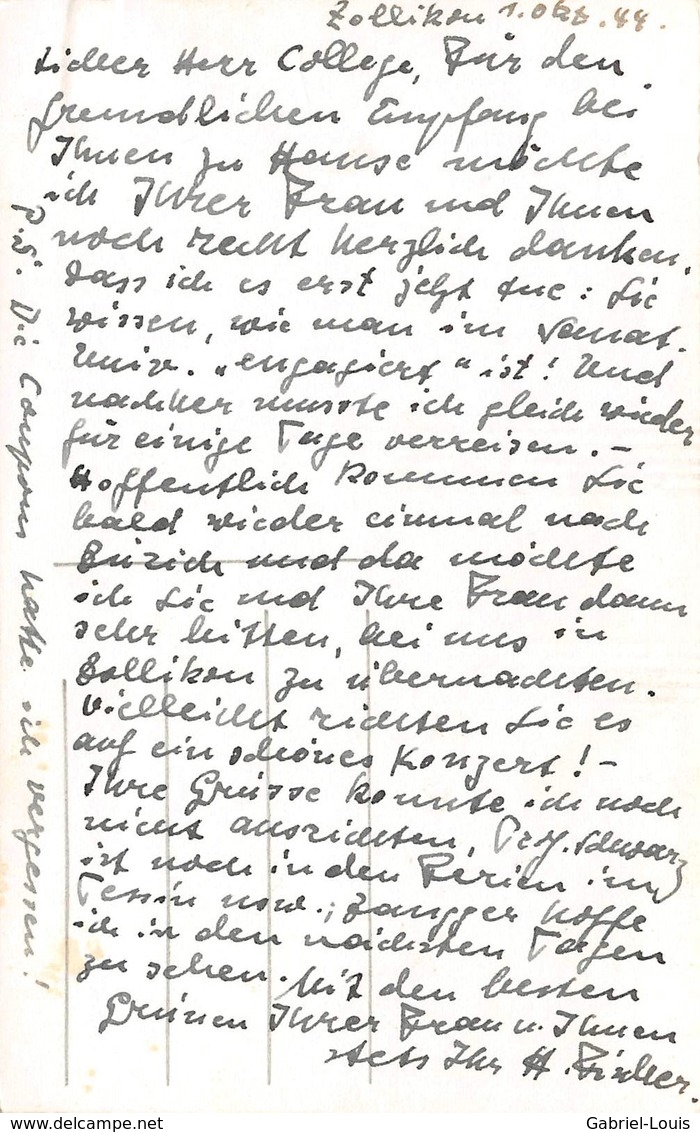 Zollikon 1. Okt. 44.
Lieber Herr College, Für den
freundlichen Empfang bei
Ihnen zu Hause möchte
ich Ihrer Frau und Ihnen
noch recht herzlich danken.
Dass ich es erst jetzt tue: Sie
wissen, wie man im Sanat.
Univ. „engagiert“ ist! Und
nachher musste ich gleich wieder
für einige Tage verreisen. –
Hoffentlich kommen Sie
bald wieder einmal nach
Zürich und da möchte
ich Sie und Ihre Frau dann
sehr bitten, bei uns in
Zollikon zu übernachten.
Vielleicht richten Sie es
auf ein schönes Konzert! –
Ihre Grüsse konnte ich noch
nicht ausrichten, Prof. Schwarz
ist noch in den Ferien im
Tessin usw.; Zangger hoffe
ich in den nächsten Tagen
zu sehen. Mit den besten
Grüssen Ihrer Frau u. Ihnen
stets Ihr H.
P.S. Die Coupons hatte ich vergessen!
Gabriel-Louis